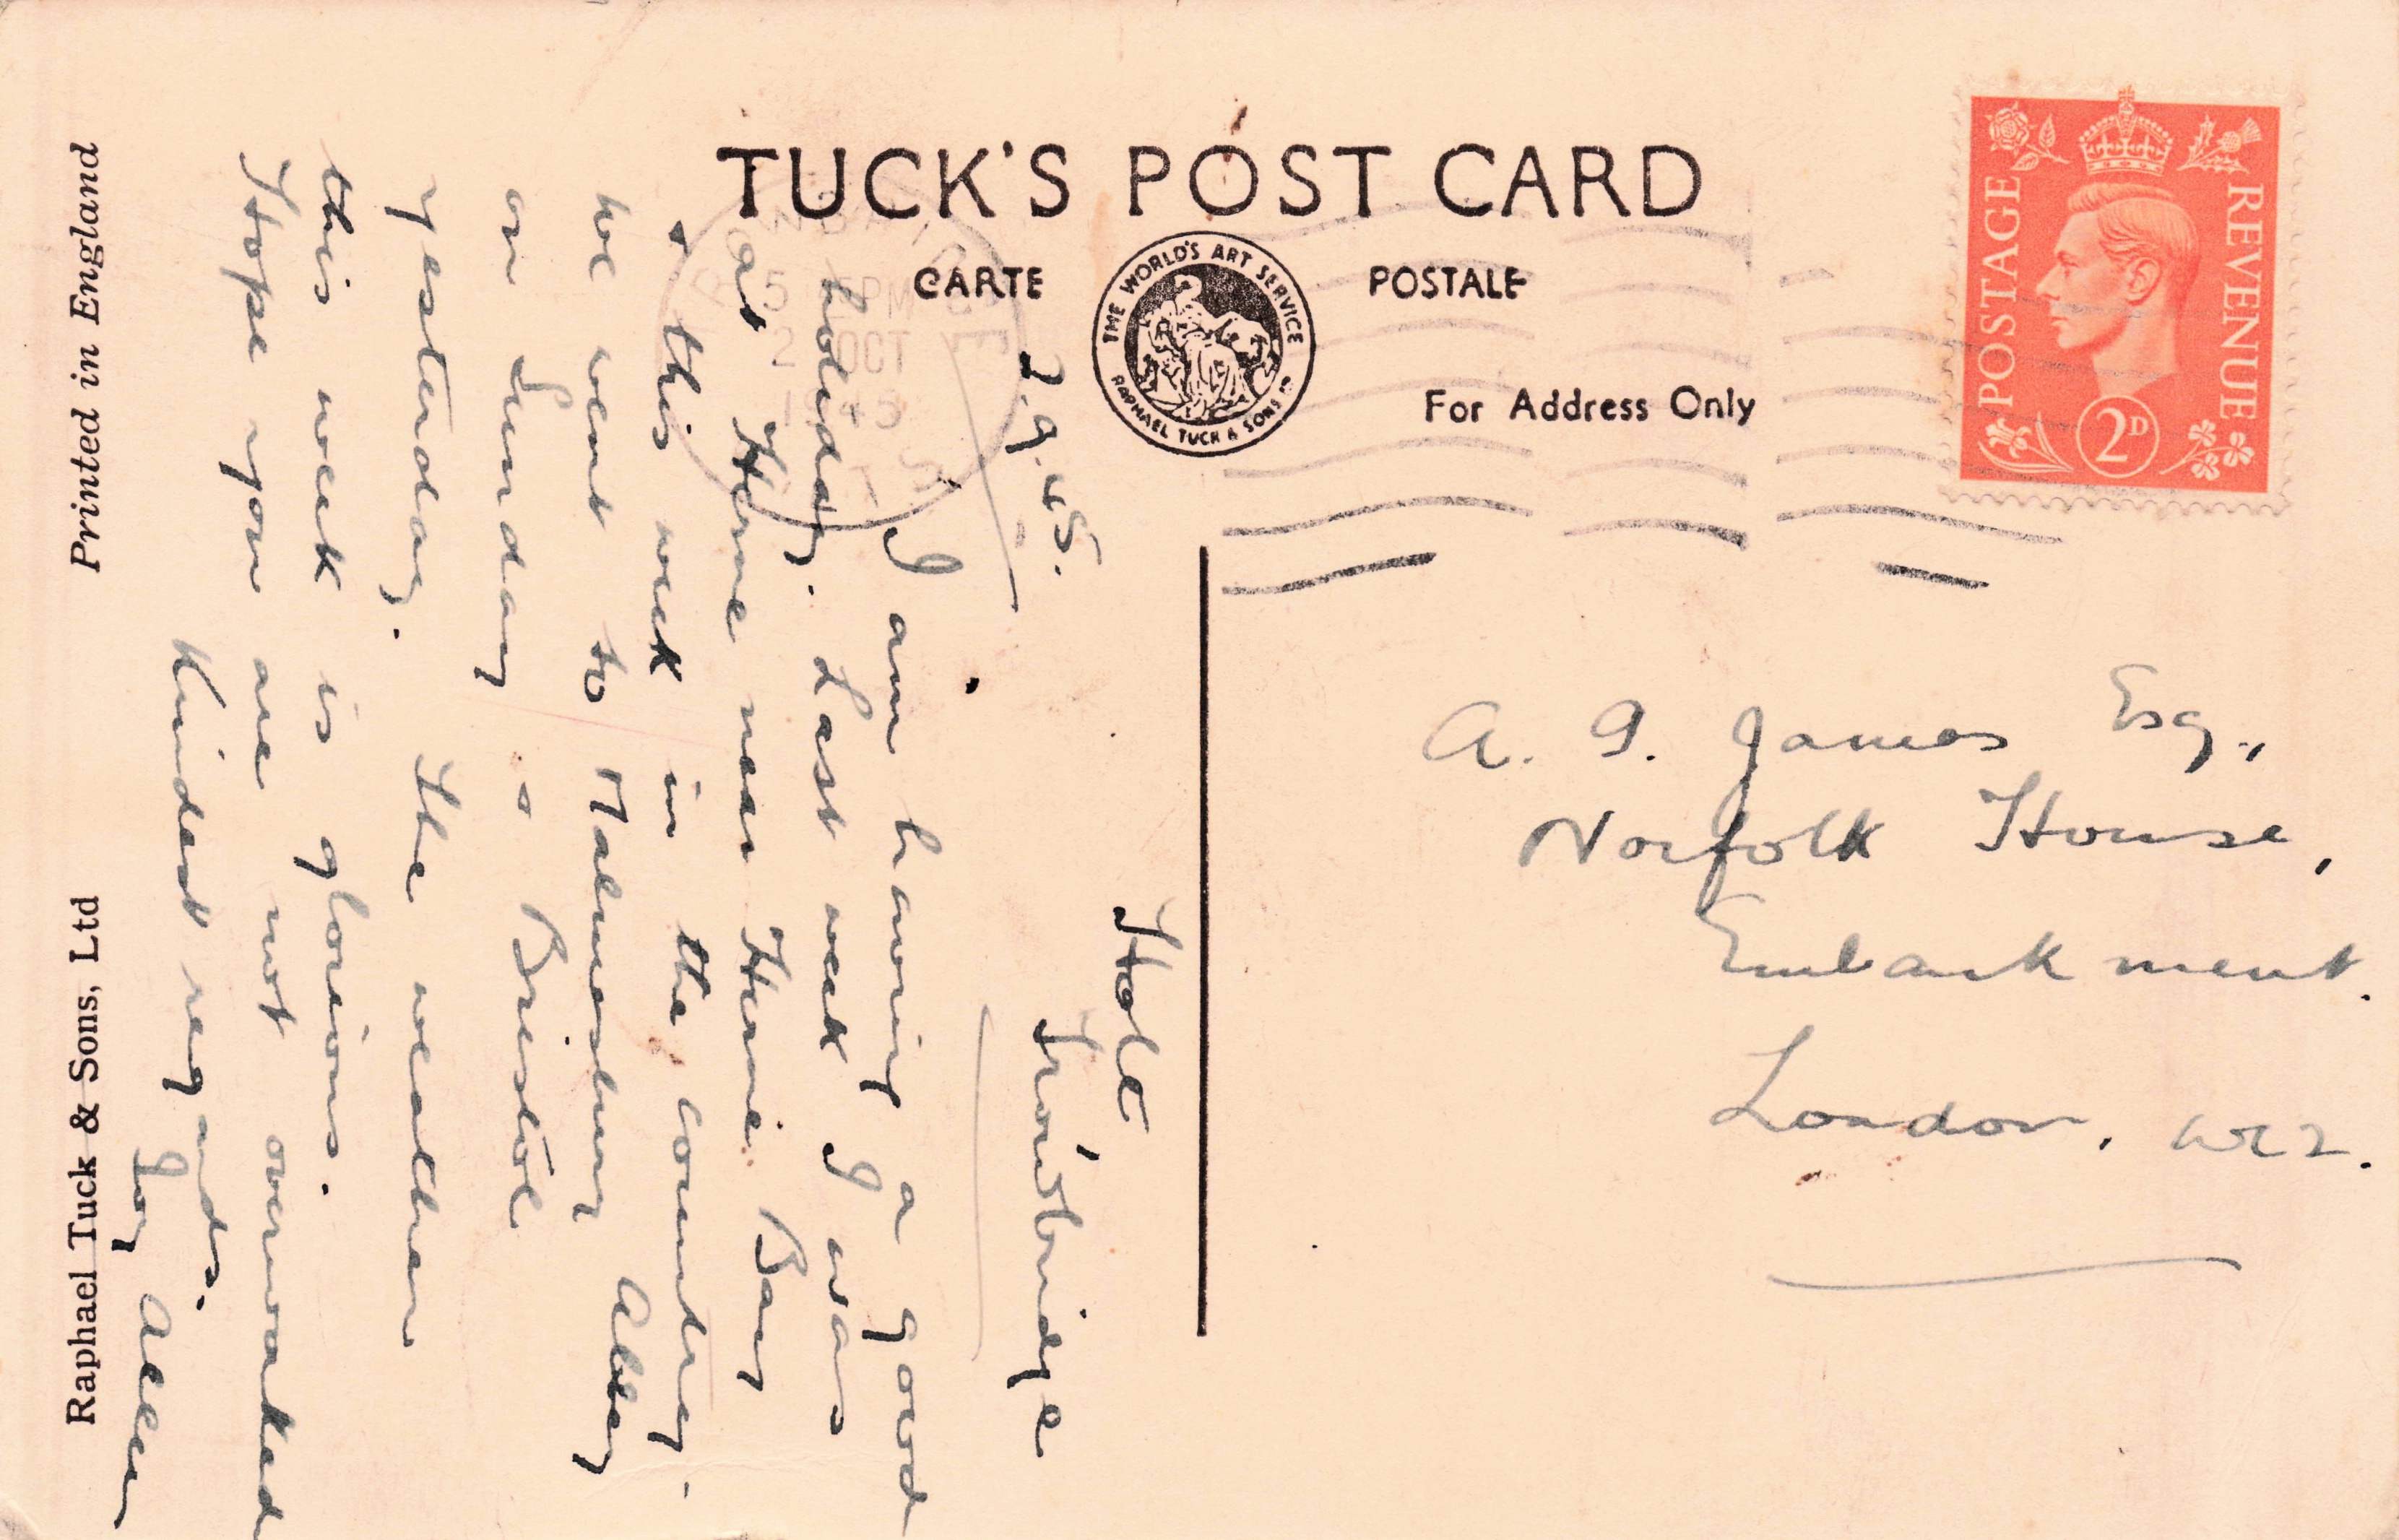 TUCK'S POST CARD
CARTE POSTALE
THE WORLD'S ART SERVICE
RAPHAEL TUCK & SONS LD
For Address Only
POSTAGE
REVENUE
2D
5 PM
2 OCT
194
Holt
Trowbridge
2.9.45.
I am having a good
holiday. Last week I was
at Herne near Herne Bay
& this week in the country.
We went to Malmesbury Abbey
on Sunday & Bristol
yesterday. The weather
this week is glorious.
Hope you are not overworked
Kindest regards.
Joy Allen
A. G. James Esq.,
Norfolk House,
Embankment.
London. WC2.
Raphael Tuck & Sons, Ltd
Printed in England